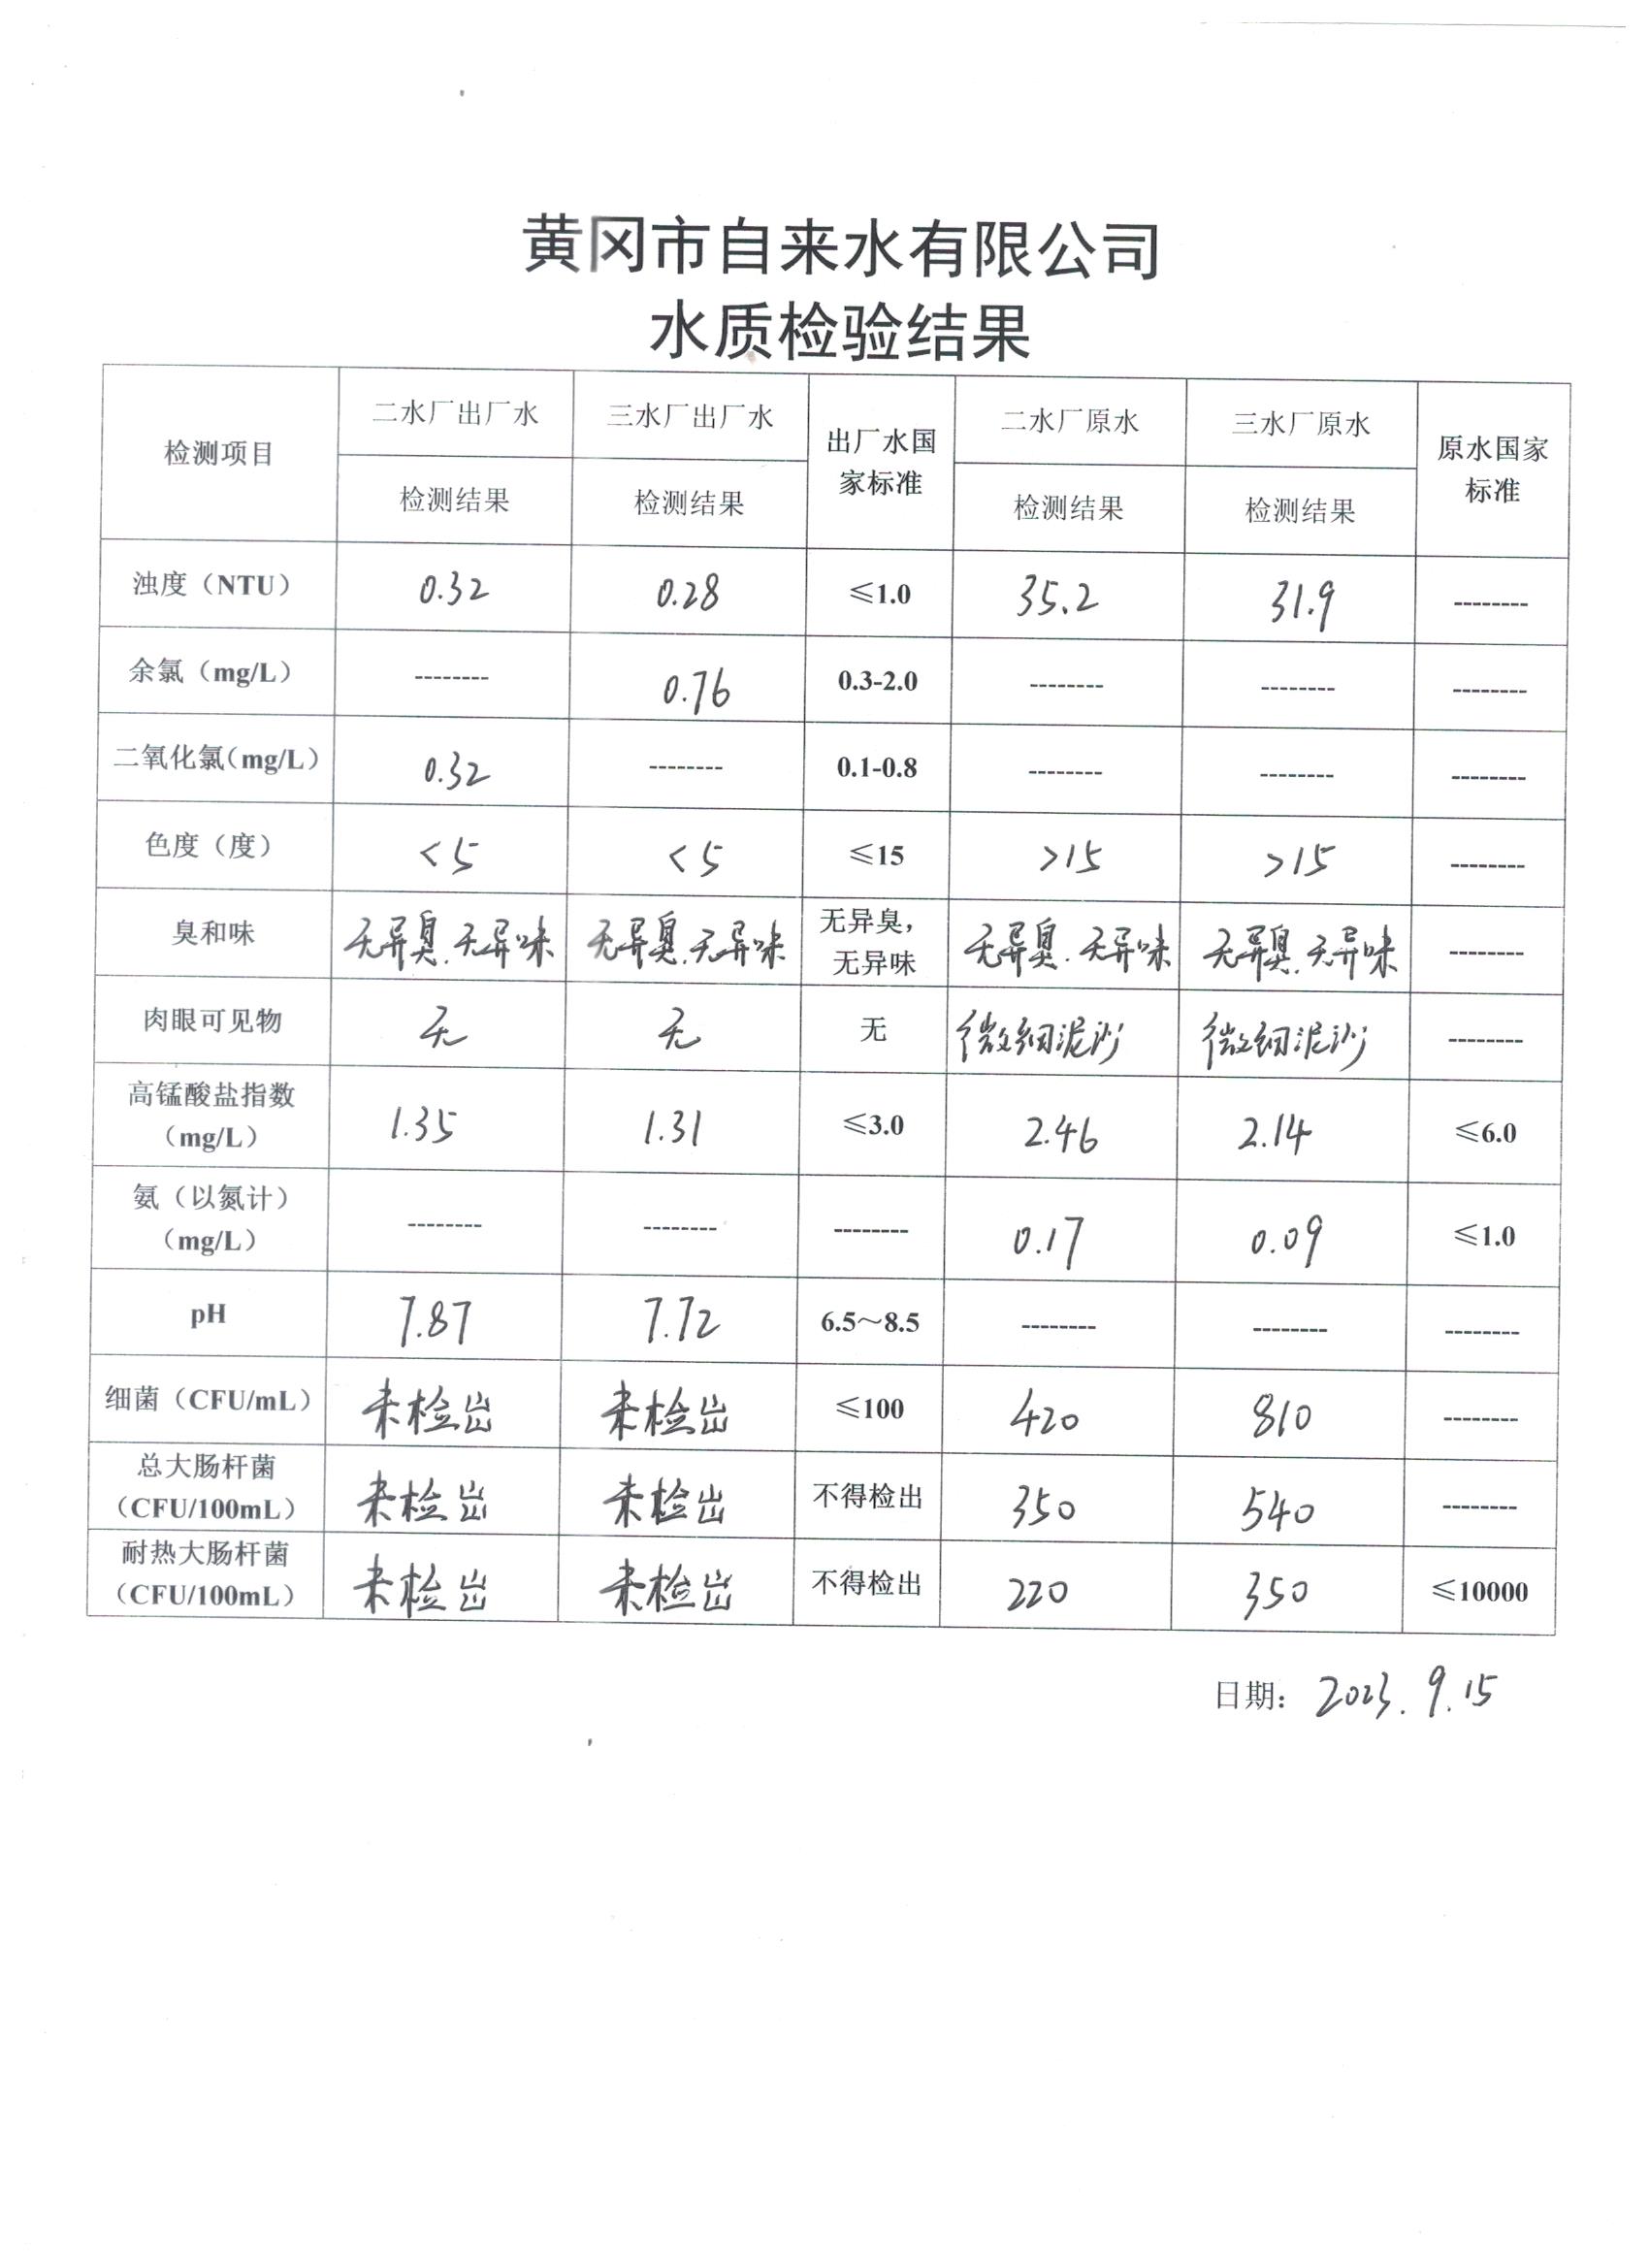 黄冈市自来水有限公司
水质检验结果
检测项目 二水厂出厂水 三水厂出厂水 出厂水国家标准 二水厂原水 三水厂原水 原水国家标准
检测结果 检测结果 检测结果 检测结果
浊度（NTU） 0.32 0.28 ≤1.0 35.2 31.9 --------
余氯（mg/L） -------- 0.76 0.3-2.0 -------- -------- --------
二氧化氯（mg/L） 0.32 -------- 0.1-0.8 -------- -------- --------
色度（度） <5 <5 ≤15 >15 >15 --------
臭和味 无异臭.无异味 无异臭.无异味 无异臭，无异味 无异臭.无异味 无异臭.无异味 --------
肉眼可见物 无 无 无 微细泥沙 微细泥沙 --------
高锰酸盐指数（mg/L） 1.35 1.31 ≤3.0 2.46 2.14 ≤6.0
氨（以氮计）（mg/L） -------- -------- -------- 0.17 0.09 ≤1.0
pH 7.87 7.72 6.5～8.5 -------- -------- --------
细菌（CFU/mL） 未检出 未检出 ≤100 420 810 --------
总大肠杆菌（CFU/100mL） 未检出 未检出 不得检出 350 540 --------
耐热大肠杆菌（CFU/100mL） 未检出 未检出 不得检出 220 350 ≤10000
日期： 2023.9.15